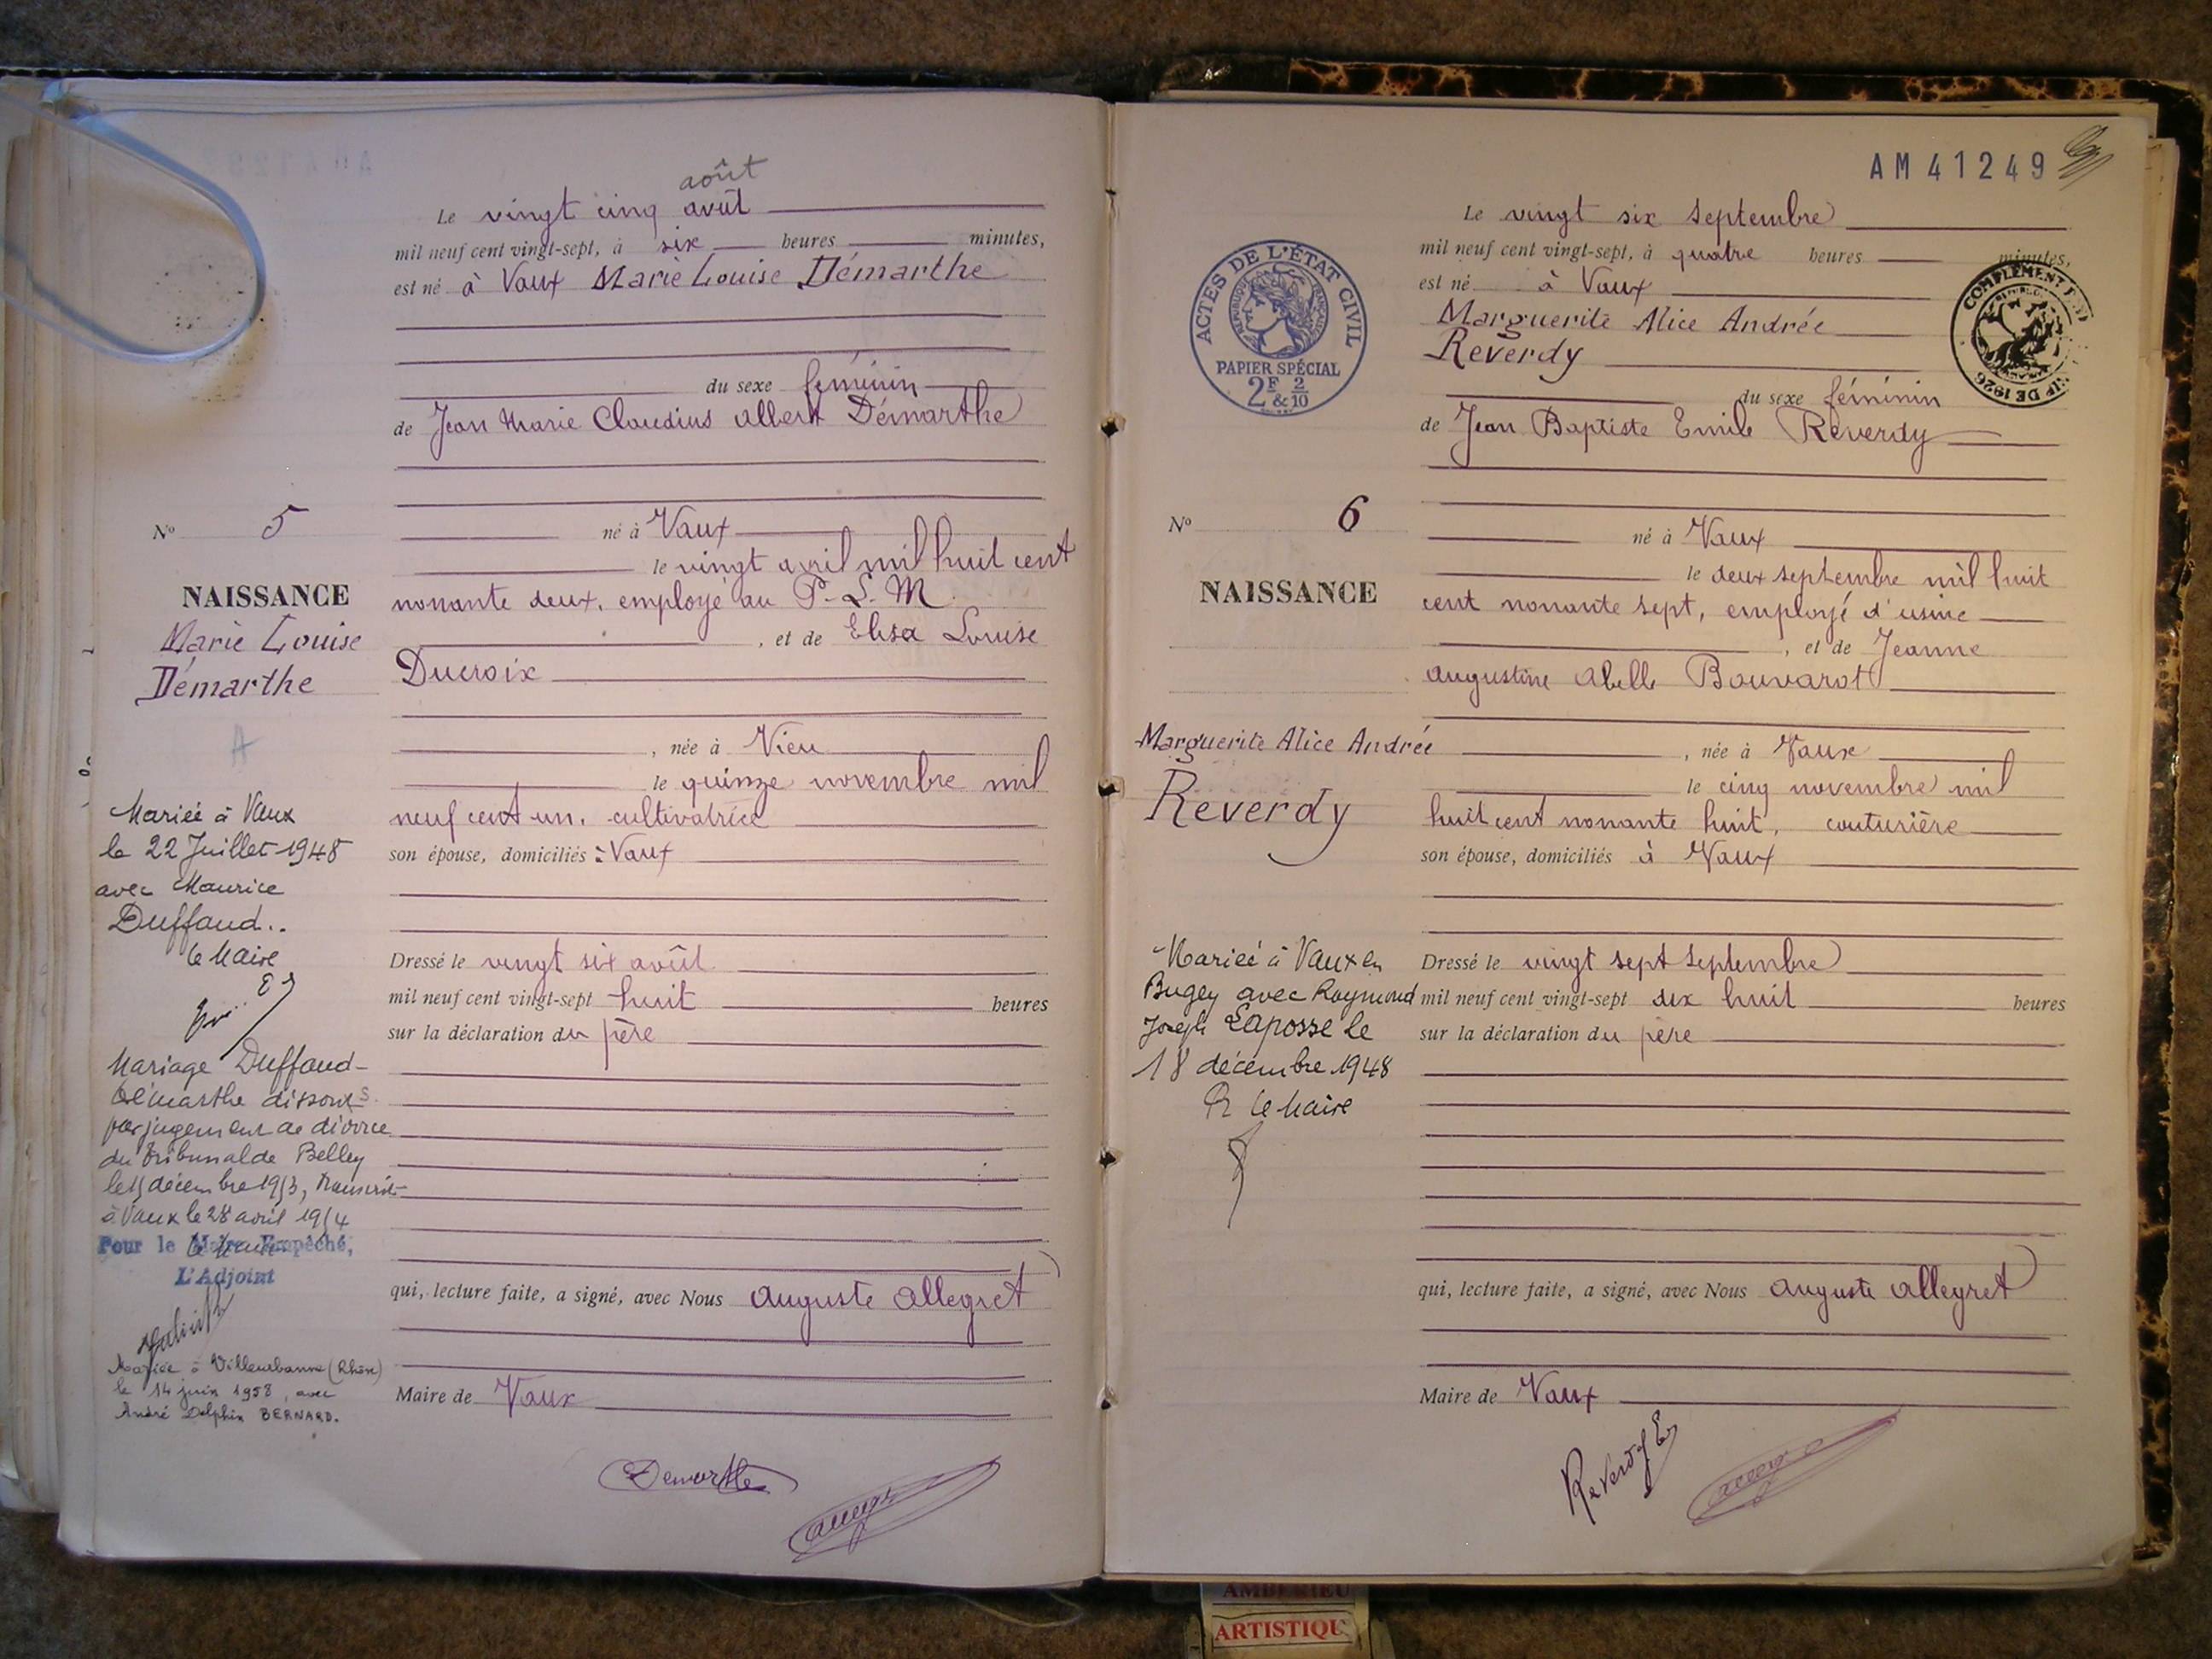 août
Le vingt cinq avût
mil neuf cent vingt-sept, à six heures minutes,
est né à Vaux Marie Louise Démarthe
du sexe féminin
de Jean Marie Claudius Albert Démarthe
né à Vaux
le vingt avril mil huit cent
nonante deux, employé au P. L. M.
, et de Elisa Louise
Ducroix
, née à Vieu
le quinze novembre mil
neuf cent un, cultivatrice
son épouse, domiciliés à Vaux
Dressé le vingt six août
mil neuf cent vingt-sept huit heures
sur la déclaration du père
qui, lecture faite, a signé, avec Nous Auguste Allegret
Maire de Vaux
Demarthe
N° 5
NAISSANCE
Marie Louise
Démarthe
A
Mariée à Vaux
le 22 Juillet 1948
avec Maurice
Duffaud..
le Maire
Mariage Duffaud-
Démarthe dissous
par jugement de divorce
du tribunal de Belley
le 15 décembre 1953, transcrit
à Vaux le 28 avril 1954
le Maire
Pour le Maire Empêché,
L'Adjoint
Mariée à Villeurbanne (Rhône)
le 14 juin 1958, avec
André Delphin BERNARD.
AM 41249
ACTES DE L'ÉTAT CIVIL
RÉPUBLIQUE FRANÇAISE
PAPIER SPÉCIAL
2F & 2/10
COMPLÉMENT
DE 1926
Le vingt six Septembre
mil neuf cent vingt-sept, à quatre heures minutes,
est né à Vaux
Marguerite Alice Andrée
Reverdy
du sexe féminin
de Jean Baptiste Emile Reverdy
né à Vaux
le deux septembre mil huit
cent nonante sept, employé d'usine
, et de Jeanne
Augustine Abelle Bouvarot
, née à Vaux
le cinq novembre mil
huit cent nonante huit, couturière
son épouse, domiciliés à Vaux
Dressé le vingt sept Septembre
mil neuf cent vingt-sept dix huit heures
sur la déclaration du père
qui, lecture faite, a signé, avec Nous Auguste Allegret
Maire de Vaux
Reverdy E
N° 6
NAISSANCE
Marguerite Alice Andrée
Reverdy
Mariée à Vaux en
Bugey avec Raymond
Joseph Laposse le
18 décembre 1948
Pr le Maire
AMBERIEU
ARTISTIQU